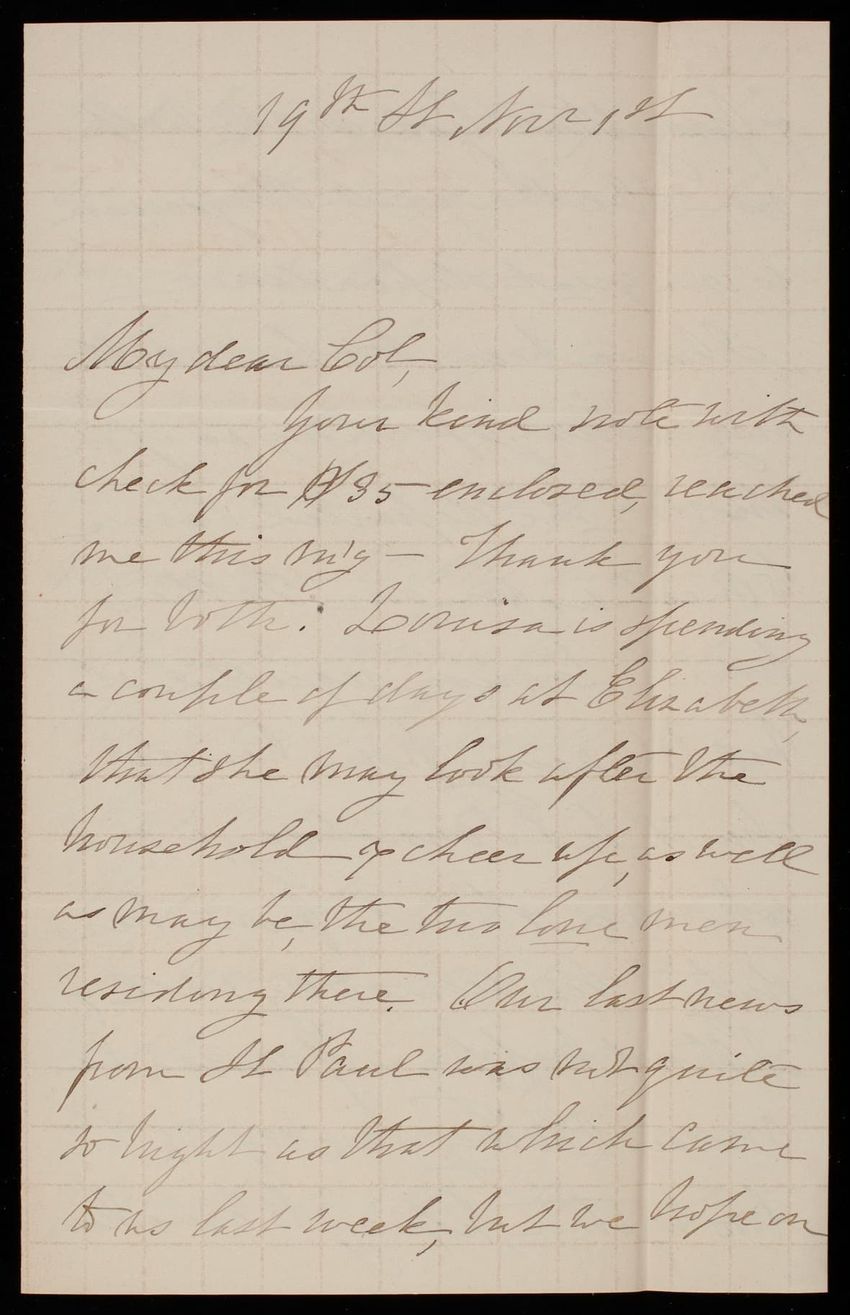 19th St, Nov 1st
My dear Col,
Your kind note with
check for $35 enclosed, reached
me this m'g — Thank you
for both. Louisa is spending
a couple of days at Elizabeth,
that she may look after the
household & cheer up, as well
as may be, the two lone men
residing there. Our last news
from St Paul was not quite
so bright as that which came
to us last week, but we hope on